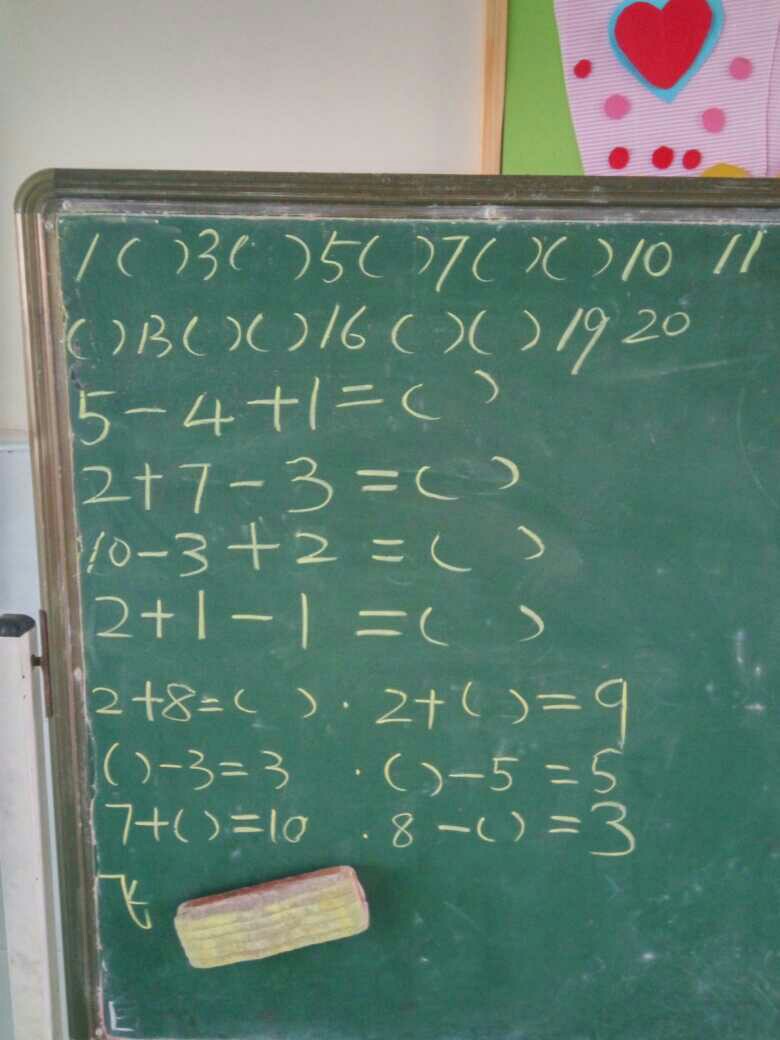 1 ( ) 3 ( ) 5 ( ) 7 ( ) ( ) 10 11
( ) 13 ( ) ( ) 16 ( ) ( ) 19 20
5 - 4 + 1 = ( )
2 + 7 - 3 = ( )
10 - 3 + 2 = ( )
2 + 1 - 1 = ( )
2 + 8 = ( ) · 2 + ( ) = 9
( ) - 3 = 3 · ( ) - 5 = 5
7 + ( ) = 10 · 8 - ( ) = 3